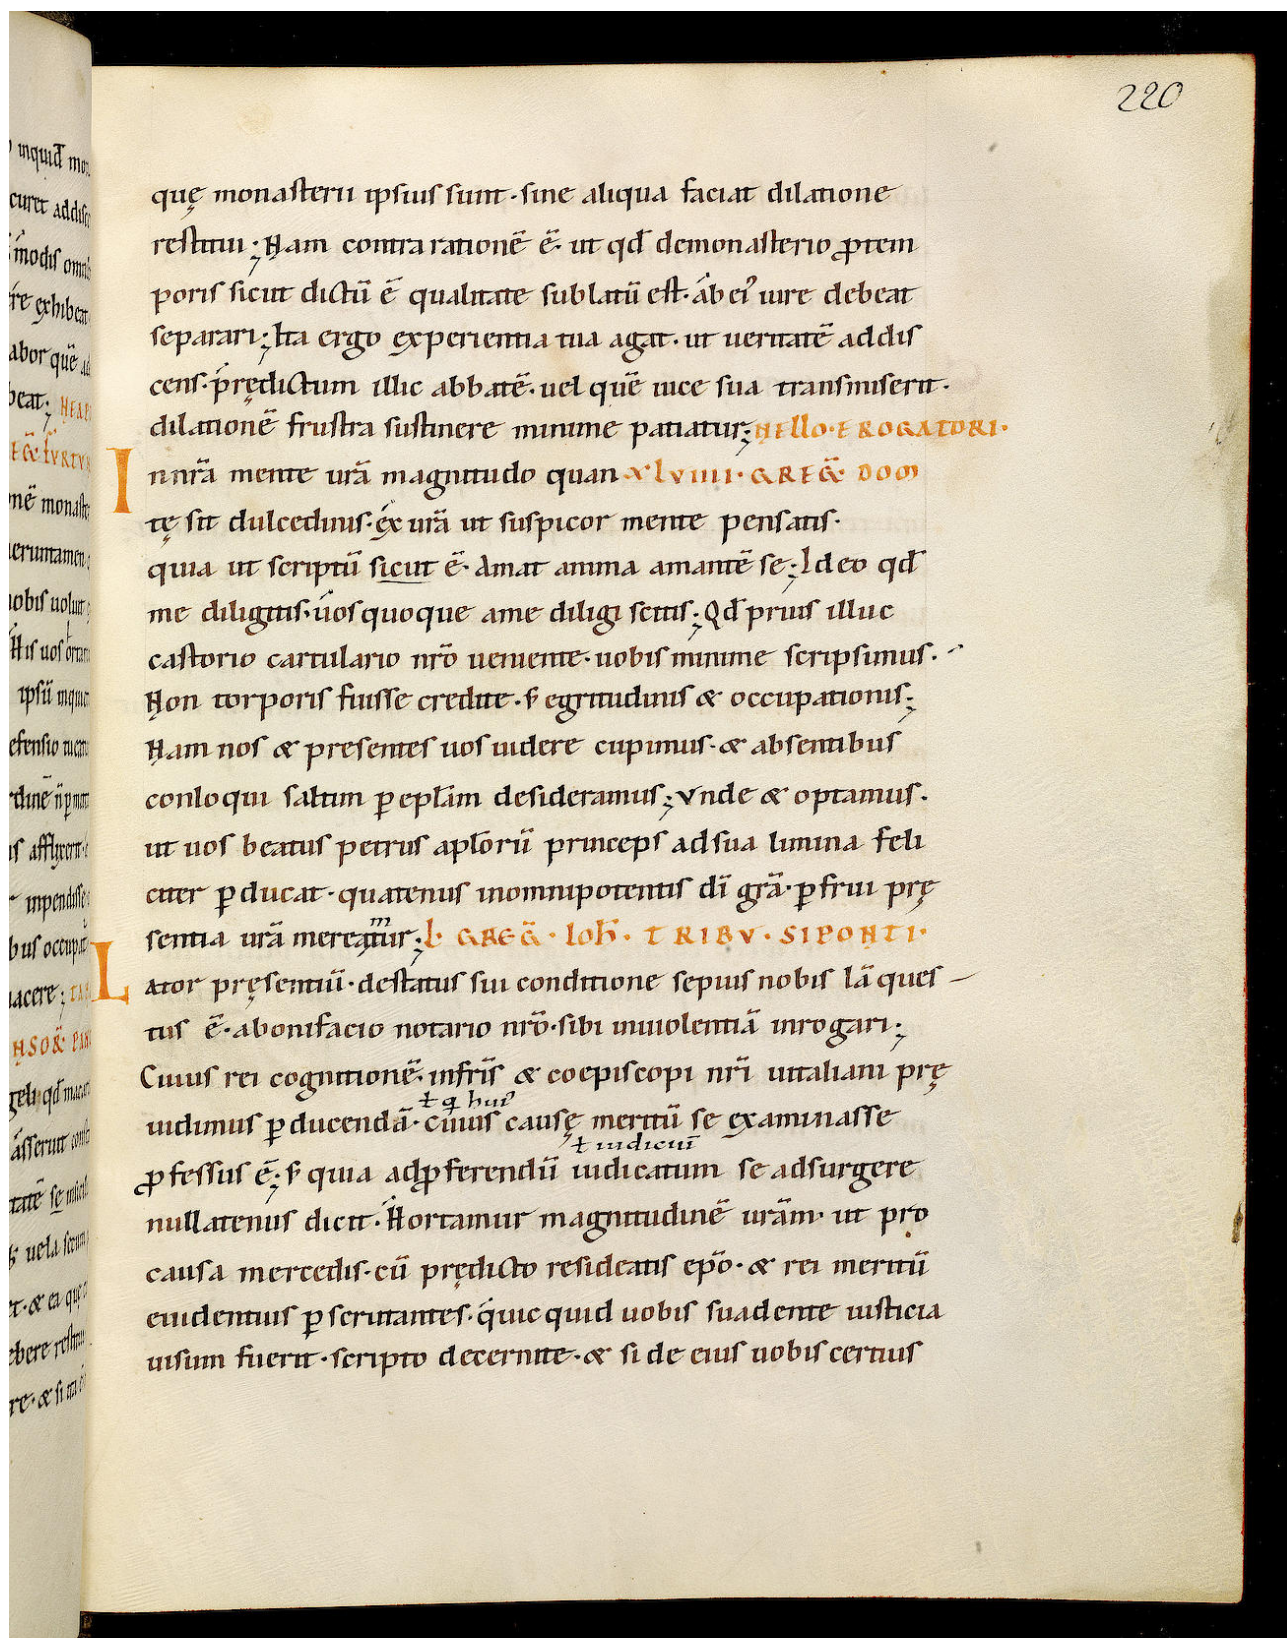 220
quę monasterii ipsius sunt · sine aliqua faciat dilatione
restitui ; Nam contra rationē ē · ut qđ demonasterio ꝓtem
poris sicut dictū ē qualitate sublatū est · ab ei' iure debeat
separari ; Ita ergo experientia tua agat · ut ueritatē addis
cens · prędictum illic abbatē · uel quē uice sua transmiserit ·
dilationē frustra sustinere minime patiatur ; NELLO · EROGATORI ·
In nr̄a mente ur̄a magnitudo quan XLVIIII · GREḠ DOM
tę sit dulcedinis · ex ur̄a ut suspicor mente pensatis ·
quia ut scriptū sicut ē · Amat anima amantē se ; Ideo qđ
me diligitis · uos quoque ame diligi scitis ; Qđ prius illuc
castorio cartulario nr̄o ueniente · uobis minime scripsimus ·
Non torporis fuisse credite · s̄ egritudinis & occupationis ;
Nam nos & presentes uos uidere cupimus · & absentibus
conloqui saltim ꝑ eplam desideramus ; Vnde & optamus ·
ut uos beatus petrus aplorū princeps ad sua limina feli
citer ꝑducat · quatenus inomnipotentis dī grā · ꝑfrui prę
sentia ur̄a mereatur ; L · GREḠ · IOH̄ · TRIBV · SIPONTI ·
m
Lator pręsentiū · destatus sui conditione sepius nobis lā ques
tus ē · abonifacio notario nr̄o · sibi uiuolentiā inrogari ;
Cuius rei cognitionē · infr̄is & coepiscopi nr̄i uitaliani prę
uidimus ꝑducendā · cuius causę meritū se examinasse
ł q hui'
ꝓfessus ē ; s̄ quia adꝓferendū iudicatum se adsurgere
ł iudiciū
nullatenus dicit · Hortamur magnitudinē ur̄am · ut pro
causa mercedis · cū prędicto resideatis ep̄o · & rei meritū
euidentius ꝑscrutantes · quic quid uobis suadente iusticia
uisum fuerit · scripto decernite · & si de eius uobis certius